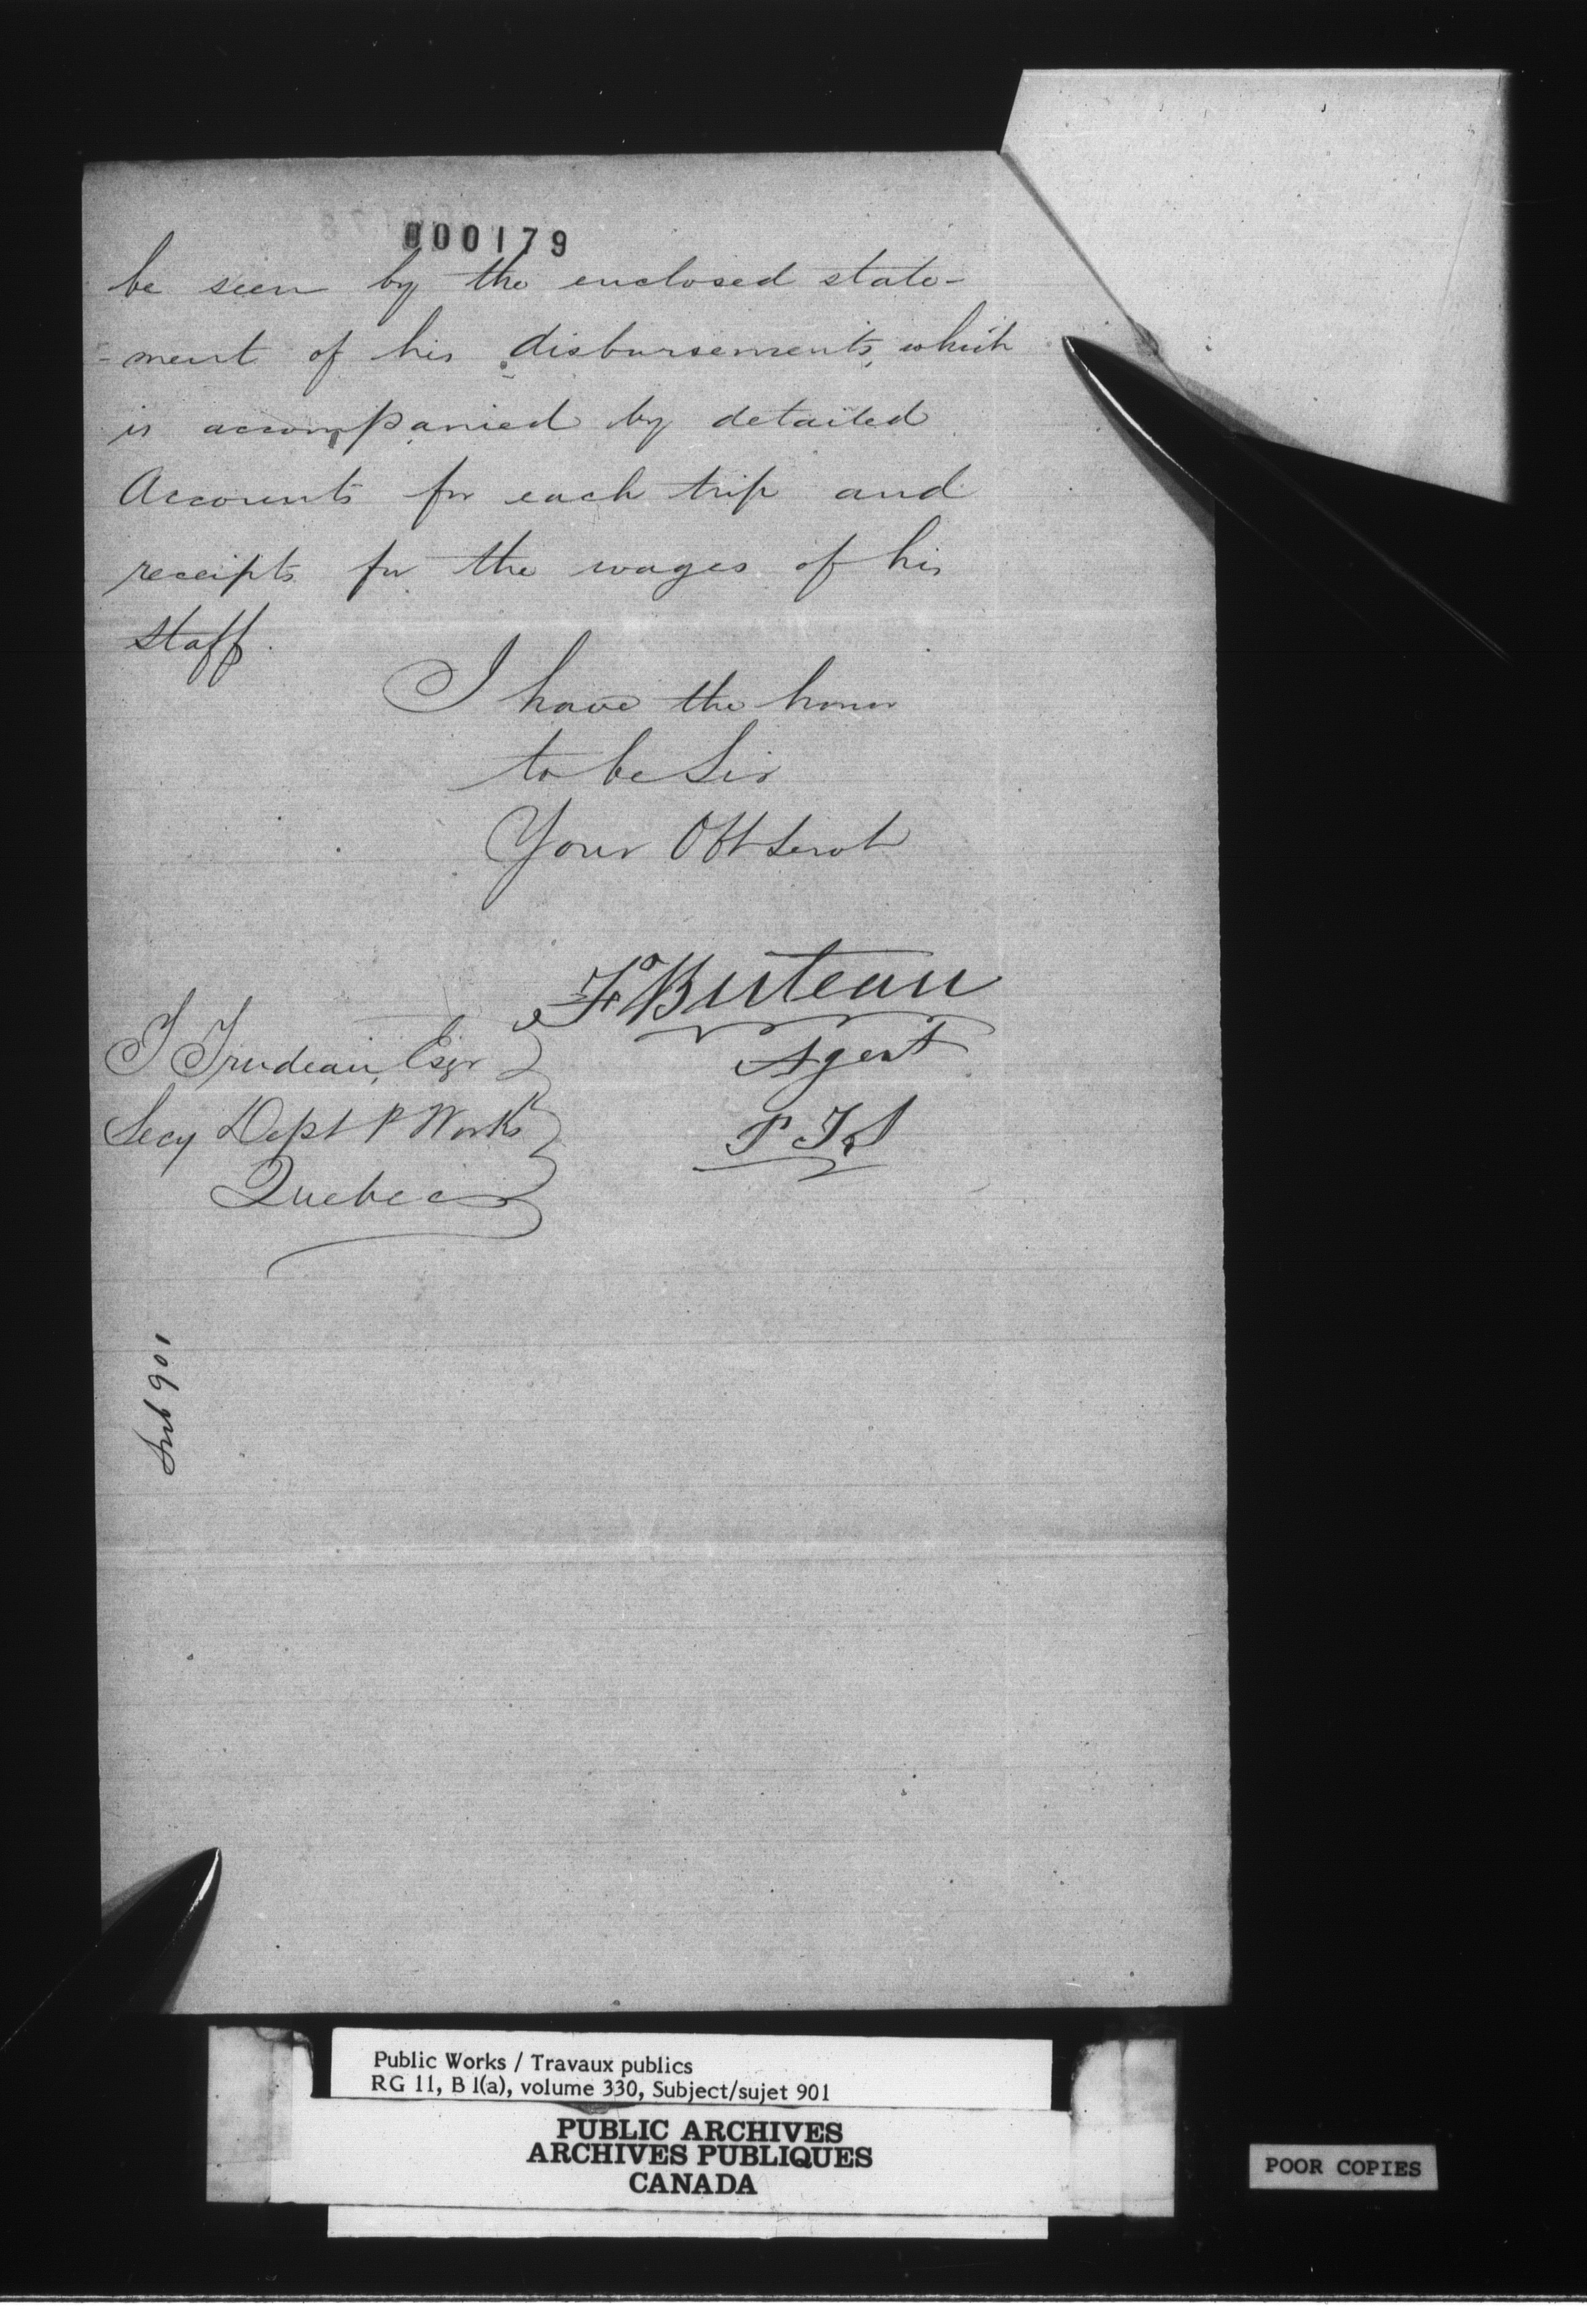 000179
be seen by the enclosed state-
-ment of his disbursements, which
is accompanied by detailed
Accounts for each trip and
receipts for the wages of his
staff.
I have the honor
to be Sir
Your Obt Servt
F Buteau
Agent
P T S
T Trudeau, Esqr
Secy Dept P Works
Quebec
Sub 901
Public Works / Travaux publics
RG 11, B 1(a), volume 330, Subject/sujet 901
PUBLIC ARCHIVES
ARCHIVES PUBLIQUES
CANADA
POOR COPIES